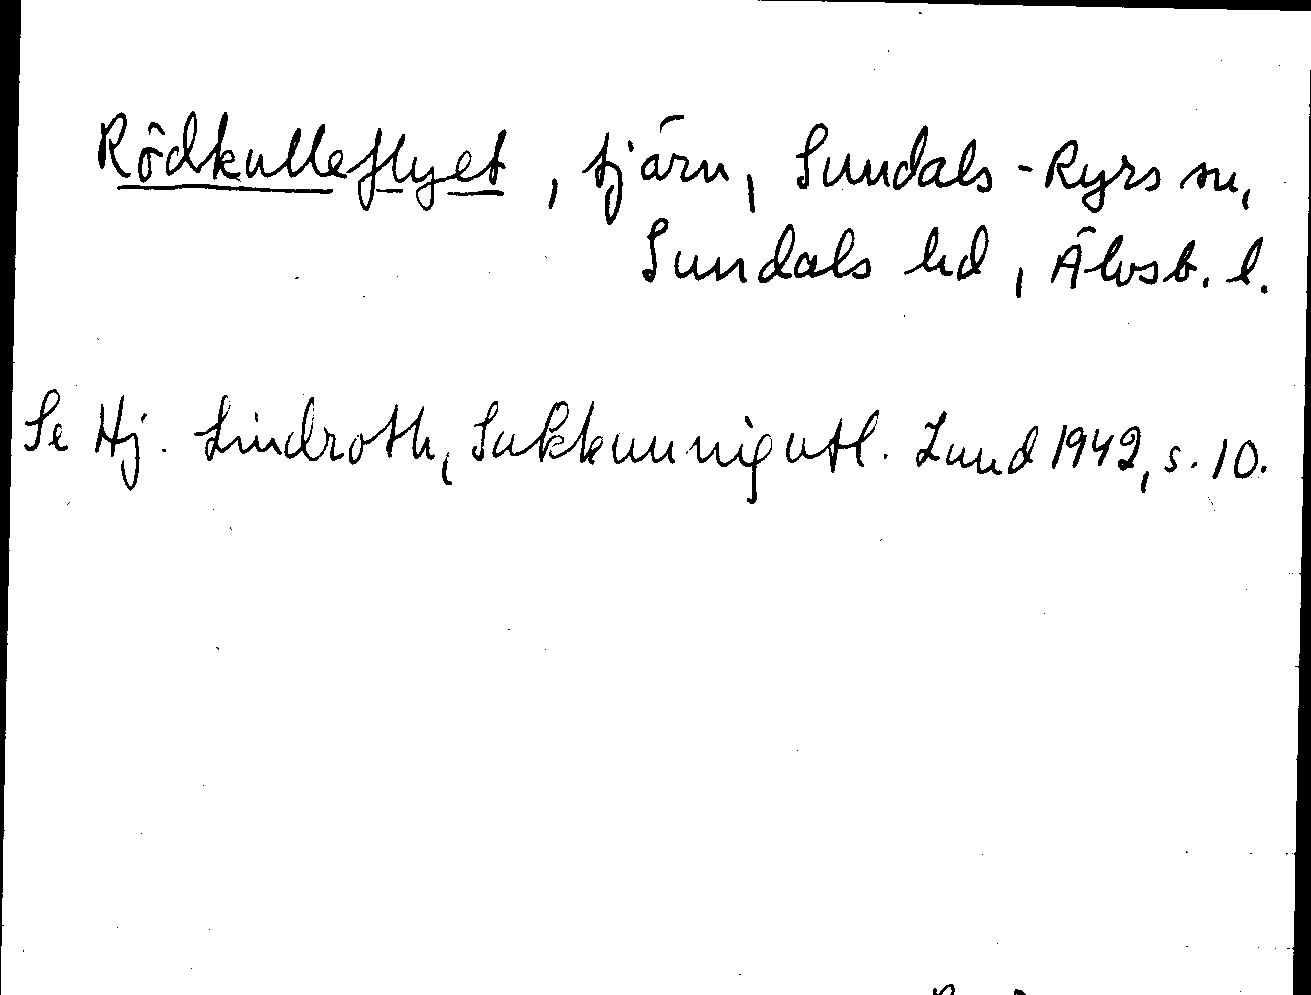 Rödkulleflyet, tjärn, Sundals-Ryrs sn,
Sundals hd, Älvsb. l.
Se Hj. Lindroth, Sakkunnigutl. Lund 1942, s. 10.